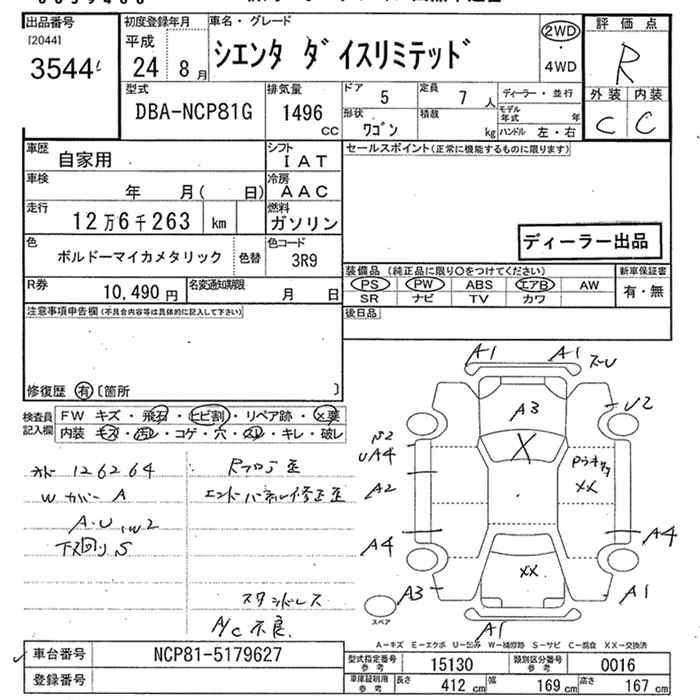 出品番号
[2044]
3544
初度登録年月
平成
24 8月
車名・グレード
シエンタ ダイスリミテッド
2WD
・
4WD
評価点
R
外装 内装
C C
型式
DBA-NCP81G
排気量
1496
cc
ドア 5
定員 7 人
形状 ワゴン
積載 kg
ディーラー・並行
モデル年式 年
ハンドル 左・右
車歴 自家用
シフト IAT
車検 年 月( 日)
冷房 AAC
走行 12万6千263 km
燃料 ガソリン
色 ボルドーマイカメタリック 色替
色コード 3R9
R券 10,490円
名変通知期限 月 日
セールスポイント(正常に機能するものに限ります)
ディーラー出品
装備品 (純正品に限り○をつけてください)
PS PW ABS エアB AW
SR ナビ TV カワ
新車保証書
有・無
後日品
注意事項申告欄(不具合内容等は具体的に記入して下さい)
修復歴 有 〔箇所 〕
検査員記入欄
FW キズ・飛石・ヒビ割・リペア跡・×要
内装 キズ・汚レ・コゲ・穴・スレ・キレ・破レ
126264
Wカバー A
A・U,W2
下回りS
Rフロア歪
エンドパネル修正歪
スタンドレス
A/C 不良
A1 A1
A3
U2
UA4
A2
A4
A3
X
XX
XX
A4
A1
A1
スペア
A−キズ E−エクボ U−凹み W−補修跡 S−サビ C−腐食 XX−交換済
車台番号 NCP81-5179627
登録番号
型式指定番号 参考 15130
類別区分番号 参考 0016
車庫証明用 参考 長さ 412 cm 幅 169 cm 高さ 167 cm